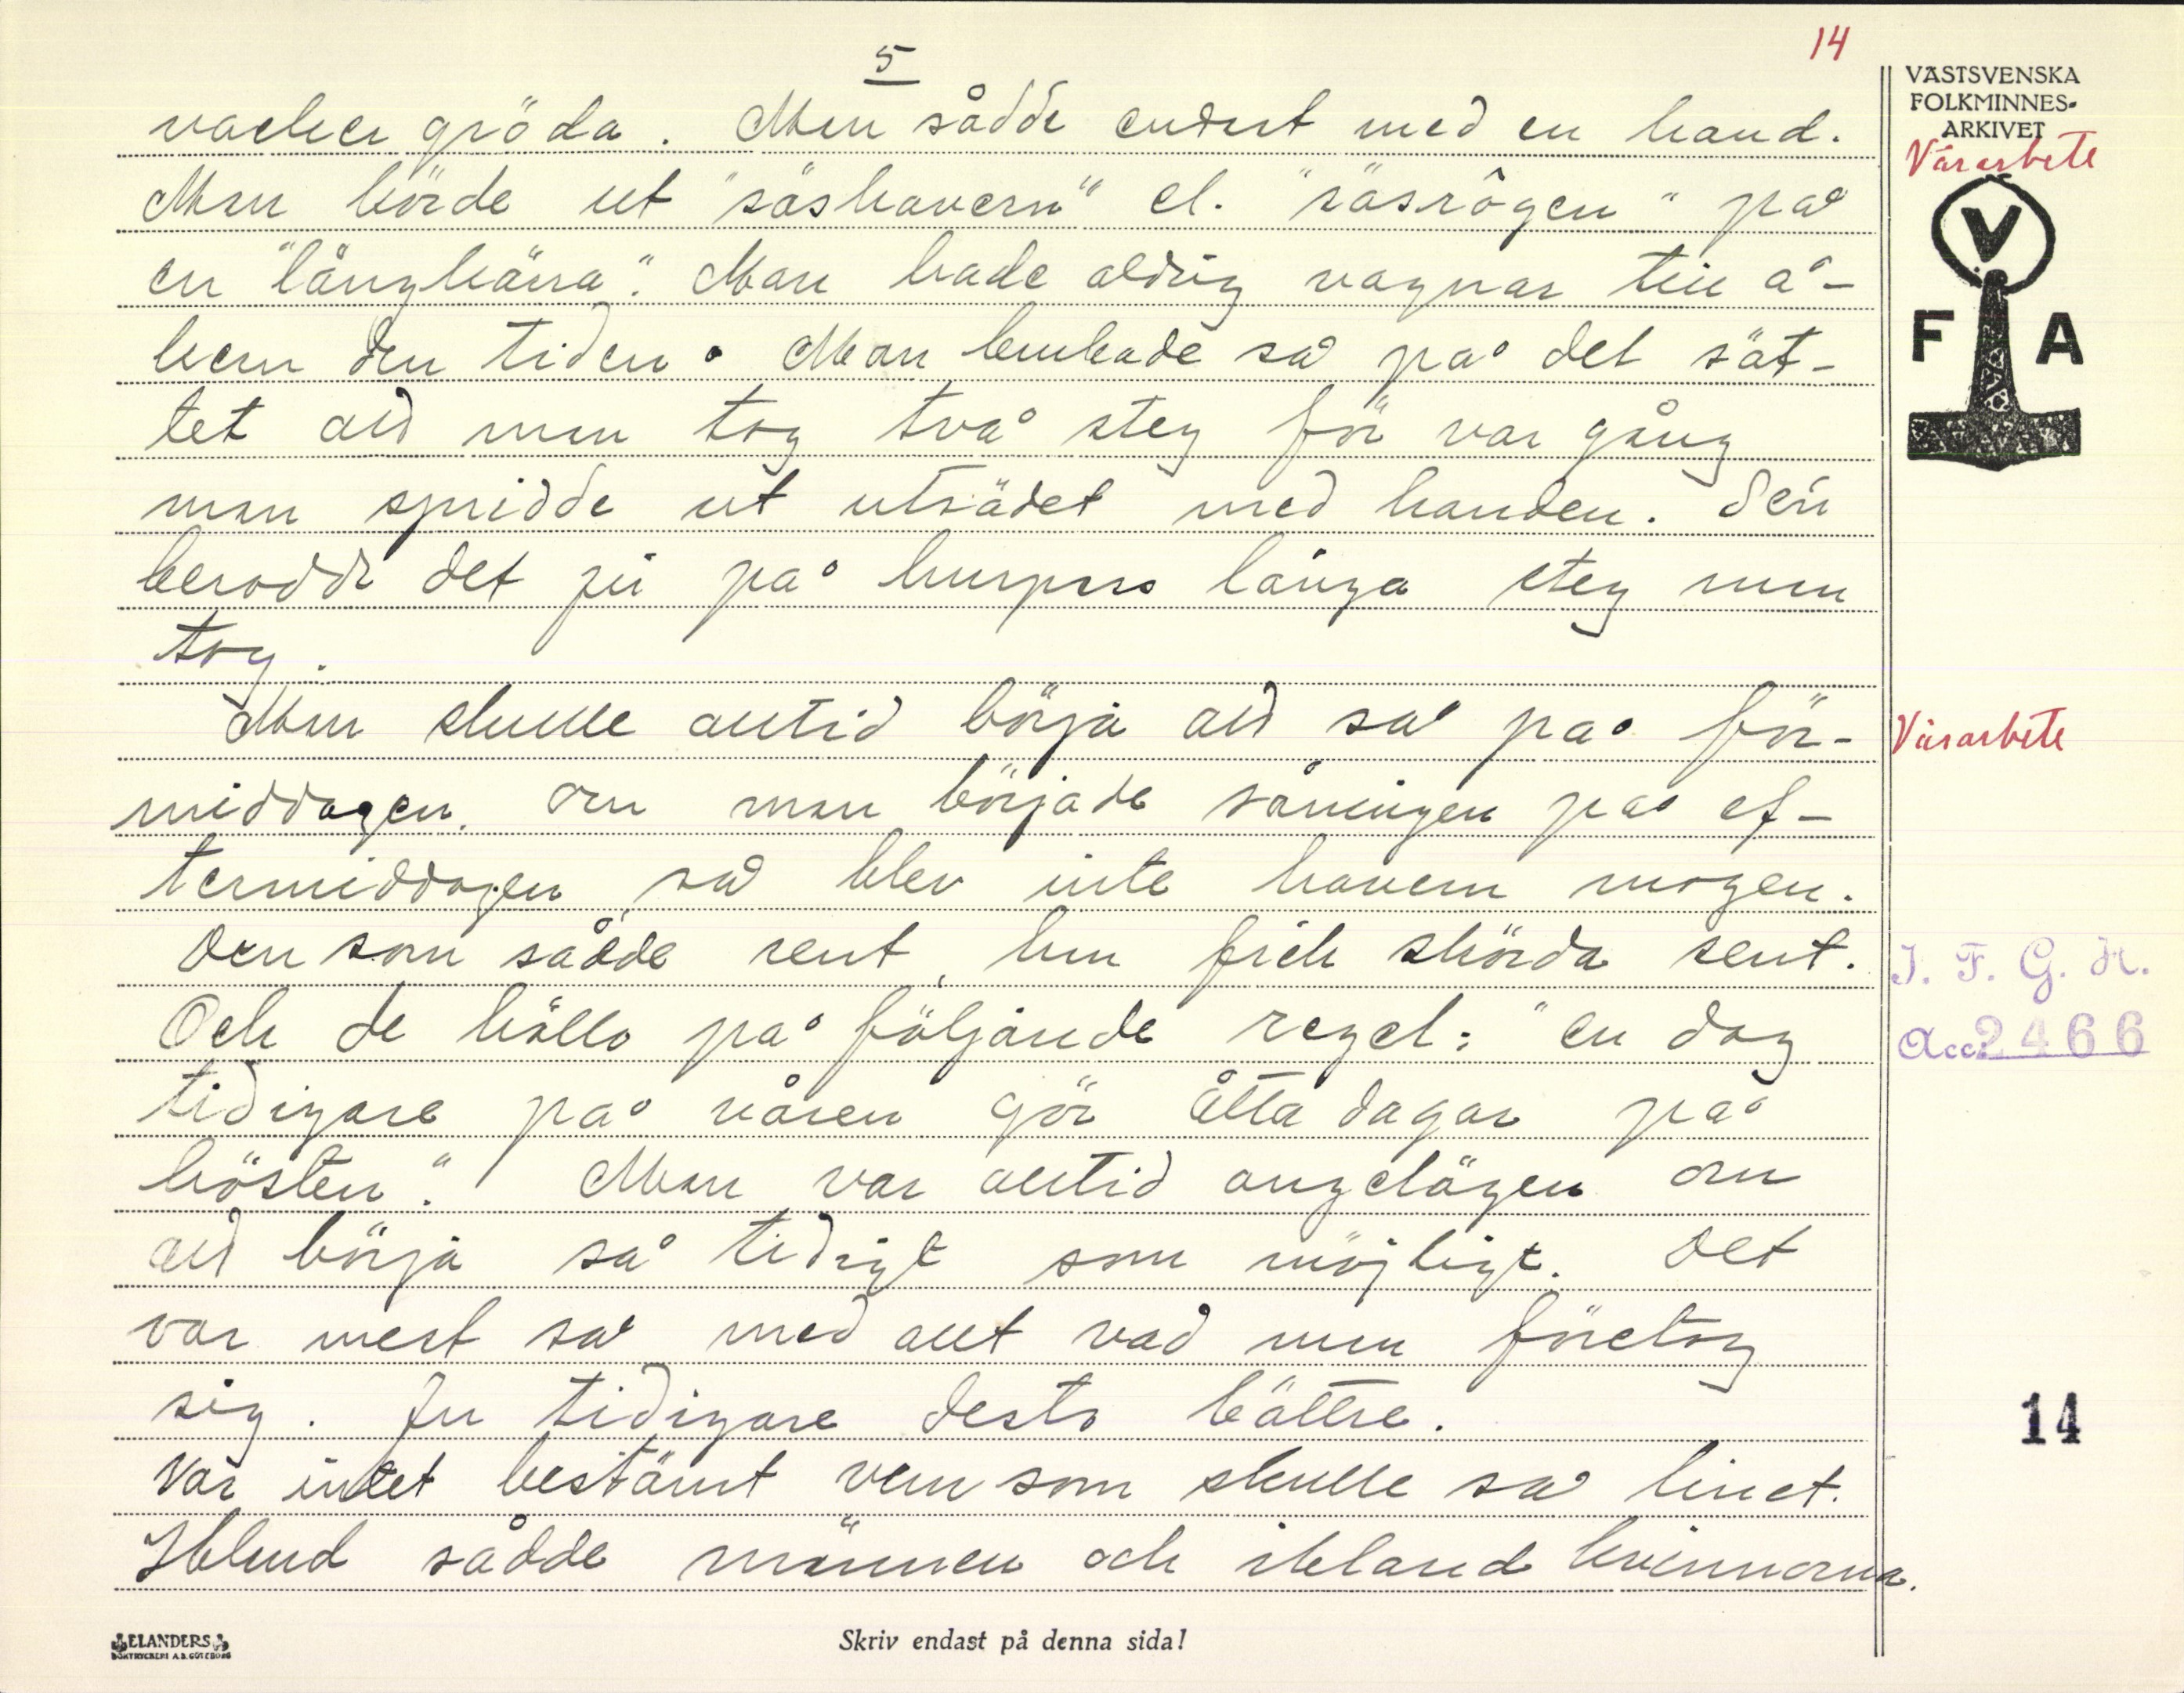 5
14
vacker gröda. Man sådde endast med en hand.
Man körde ut "såshavern" el. "såsrôgen" på
en "långkärra". Man hade aldrig vagnar till å-
kern den tiden. Man brukade så på det sät-
tet att man tog två steg för var gång
man spridde ut utsädet med handen. Sen
berodde det ju på huru långa steg man
tog.
Man skulle alltid börja att så på för-
middagen. Om man började såningen på ef-
termiddagen, så blev inte havern mogen.
Den som sådde sent, han fick skörda sent.
Och de höllo på följande regel: "en dag
tidigare på våren gör åtta dagar på
hösten." Man var alltid angelägen om
att börja så tidigt som möjligt. Det
var mest så med allt vad man företog
sig. Ju tidigare desto bättre.
Var intet bestämt vem som skulle så linet.
Ibland sådde männen och ibland kvinnorna.
VÄSTSVENSKA
FOLKMINNES-
ARKIVET
Vårarbete
V
F A
Vårarbete
I. F. G. H.
Acc. 2466
14
ELANDERS
BOKTRYCKERI A.B. GÖTEBORG
Skriv endast på denna sida!